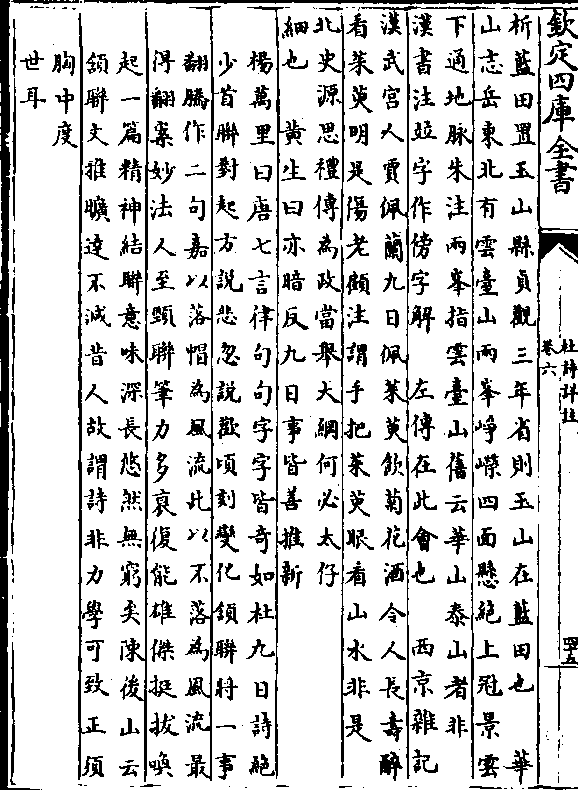 欽定四庫全書
杜詩詳註
卷六
四五
析藍田置玉山縣貞觀三年省則玉山在藍田也　華
山志岳東北有雲臺山兩峯崢嶸四面懸絕上冠景雲
下通地脉朱注兩峯指雲臺山舊云華山泰山者非
漢書注竝字作傍字解　左傳在此會也　西京雜記
漢武宫人賈佩蘭九日佩茱萸飲菊花酒令人長壽醉
看茱萸明是傷老顧注謂手把茱萸眼看山水非是
北史源思禮傳為政當舉大綱何必太仔
細也　黄生曰亦暗反九日事皆善推新
楊萬里曰唐七言律句句字字皆奇如杜九日詩絕
少首聯對起方説悲忽説歡頃刻變化頷聯將一事
翻騰作二句嘉以落帽為風流此以不落為風流最
得翻案妙法人至頸聯筆力多衰復能雄傑挺拔喚
起一篇精神結聯意味深長悠然無窮矣陳後山云
頷聯文雅曠逹不減昔人故謂詩非力學可致正須
胸中度
世耳